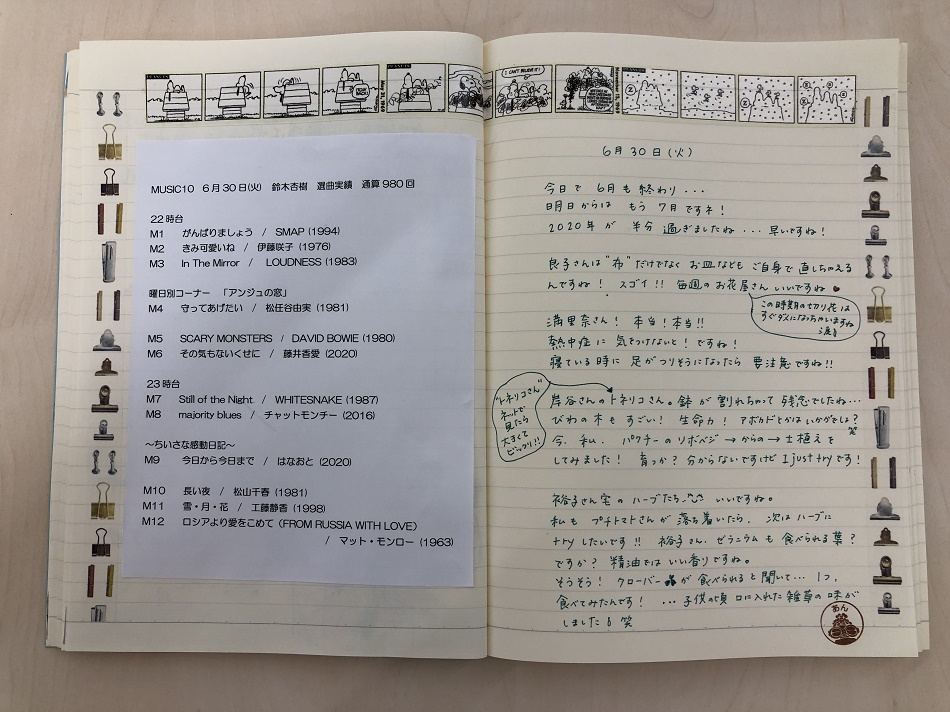 PEANUTS
PEANUTS
I CAN'T BELIEVE IT!
MUSIC10 6月30日(火) 鈴木杏樹 選曲実績 通算980回
22時台
M1 がんばりましょう / SMAP (1994)
M2 きみ可愛いね / 伊藤咲子 (1976)
M3 In The Mirror / LOUDNESS (1983)
曜日別コーナー 「アンジュの窓」
M4 守ってあげたい / 松任谷由実 (1981)
M5 SCARY MONSTERS / DAVID BOWIE (1980)
M6 その気もないくせに / 藤井香愛 (2020)
23時台
M7 Still of the Night / WHITESNAKE (1987)
M8 majority blues / チャットモンチー (2016)
～ちいさな感動日記～
M9 今日から今日まで / はなおと (2020)
M10 長い夜 / 松山千春 (1981)
M11 雪・月・花 / 工藤静香 (1998)
M12 ロシアより愛をこめて (FROM RUSSIA WITH LOVE)
/ マット・モンロー (1963)
6月30日(火)
今日で 6月も終わり...
明日からは もう 7月ですネ!
2020年が 半分 過ぎましたね... 早いですね!
良子さんは"布"だけでなく お皿なども ご自身で 直しちゃえる
んですね! スゴイ!! 毎週のお花屋さん いいですね
この時期の切り花は
すぐダメになっちゃいますね
涙
満里奈さん! 本当!本当!!
熱中症に 気をつけないと! ですね!
寝ている時に 足がつりそうになったら 要注意ですね!!
"トネリコさん"
ネットで
見たら
大きくて
ビックリ!!
岸谷さんのトネリコさん。鉢が 割れちゃって 残念でしたね...
びわの木も すごい! 生命力! アボカドとかはいかがでしょ?
笑
今、私、パクチーの リボベジ→からの→土植えを
してみました! 育つか? 分からないですけど I just try です!
裕子さん宅の ハーブたち いいですね。
私も プチトマトさんが 落ち着いたら、次はハーブに
try したいです!! 裕子さん、ゼラニウムも 食べられる葉?
ですか? 精油では いい香りですね。
そうそう! クローバー が食べられると聞いて... 1つ、
食べてみたんです! ...子供の頃 口に入れた雑草の味が
しました 笑
あん